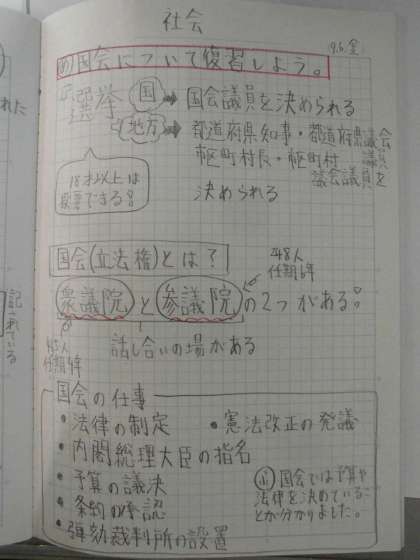 社会
9.6.金
め 国会について復習しよう。
選挙
国 → 国会議員を決められる
地方 → 都道府県知事・都道府県議会
市区町村長・市区町村 議員
議会議員を
決められる
18才以上は
投票できる。
国会(立法権)とは?
248人
任期6年
衆議院と参議院の2つがある。
465人
任期4年
話し合いの場がある
国会の仕事
・法律の制定
・憲法改正の発議
・内閣総理大臣の指名
・予算の議決
・条約の承認
・弾劾裁判所の設置
ふ 国会では予算や
法律を決めているこ
とが分かりました。
れた
記されている